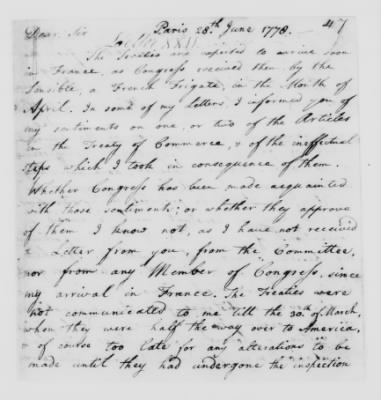 Dear Sir Paris 28th June 1778. 47
The Treaties are expected to arrive soon
in France, as Congress received them by the
Sensible, a French Frigate, in the Month of
April. In some of my letters, I informed you of
my sentiments on one, or two of the Articles
in the Treaty of Commerce, & of the ineffectual
steps which I took in consequence of them.
Whether Congress has been made acquainted
with those sentiments; or whether they approve
of them I know not, as I have not received
a Letter from you, from the Committee,
nor from any Member of Congress, since
my arrival in France. The Treaties were
not communicated to me till the 30th of March,
when they were half the way over to America,
& of course too late for any alterations to be
made until they had undergone the inspection